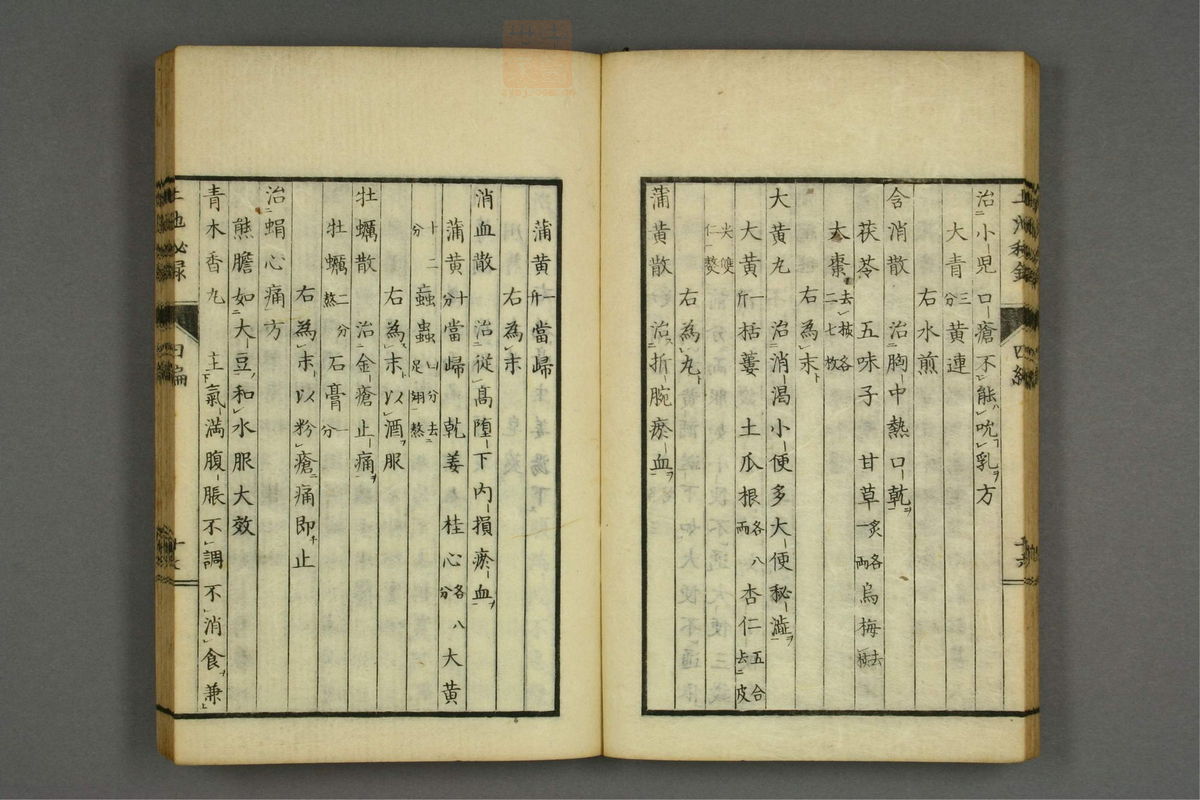 治小児口瘡不能吮乳方
大青三分黄連
右水煎
含消散　治胸中熱口乾
茯苓　五味子　甘草炙各一兩烏梅去核
大棗去核各二七枚
右為末
大黄丸　治消渇小便多大便秘澁
大黄一斤括蔞　土瓜根各八兩杏仁五合去皮
尖雙仁熬
右為丸
蒲黄散　治折腕瘀血
蒲黄一斤當歸
右為末
消血散　治從髙堕下内損瘀血
蒲黄十分當歸　乾姜　桂心各八分大黄
十二分　蝱蟲四分去足翅熬
右為末以酒服
牡蠣散　治金瘡止痛
牡蠣二分熬石膏一分
右為末以粉瘡痛即止
治蜎心痛方
熊膽如大豆和水服大效
青木香丸　主氣滿腹脹不調不消食兼
四編
四編